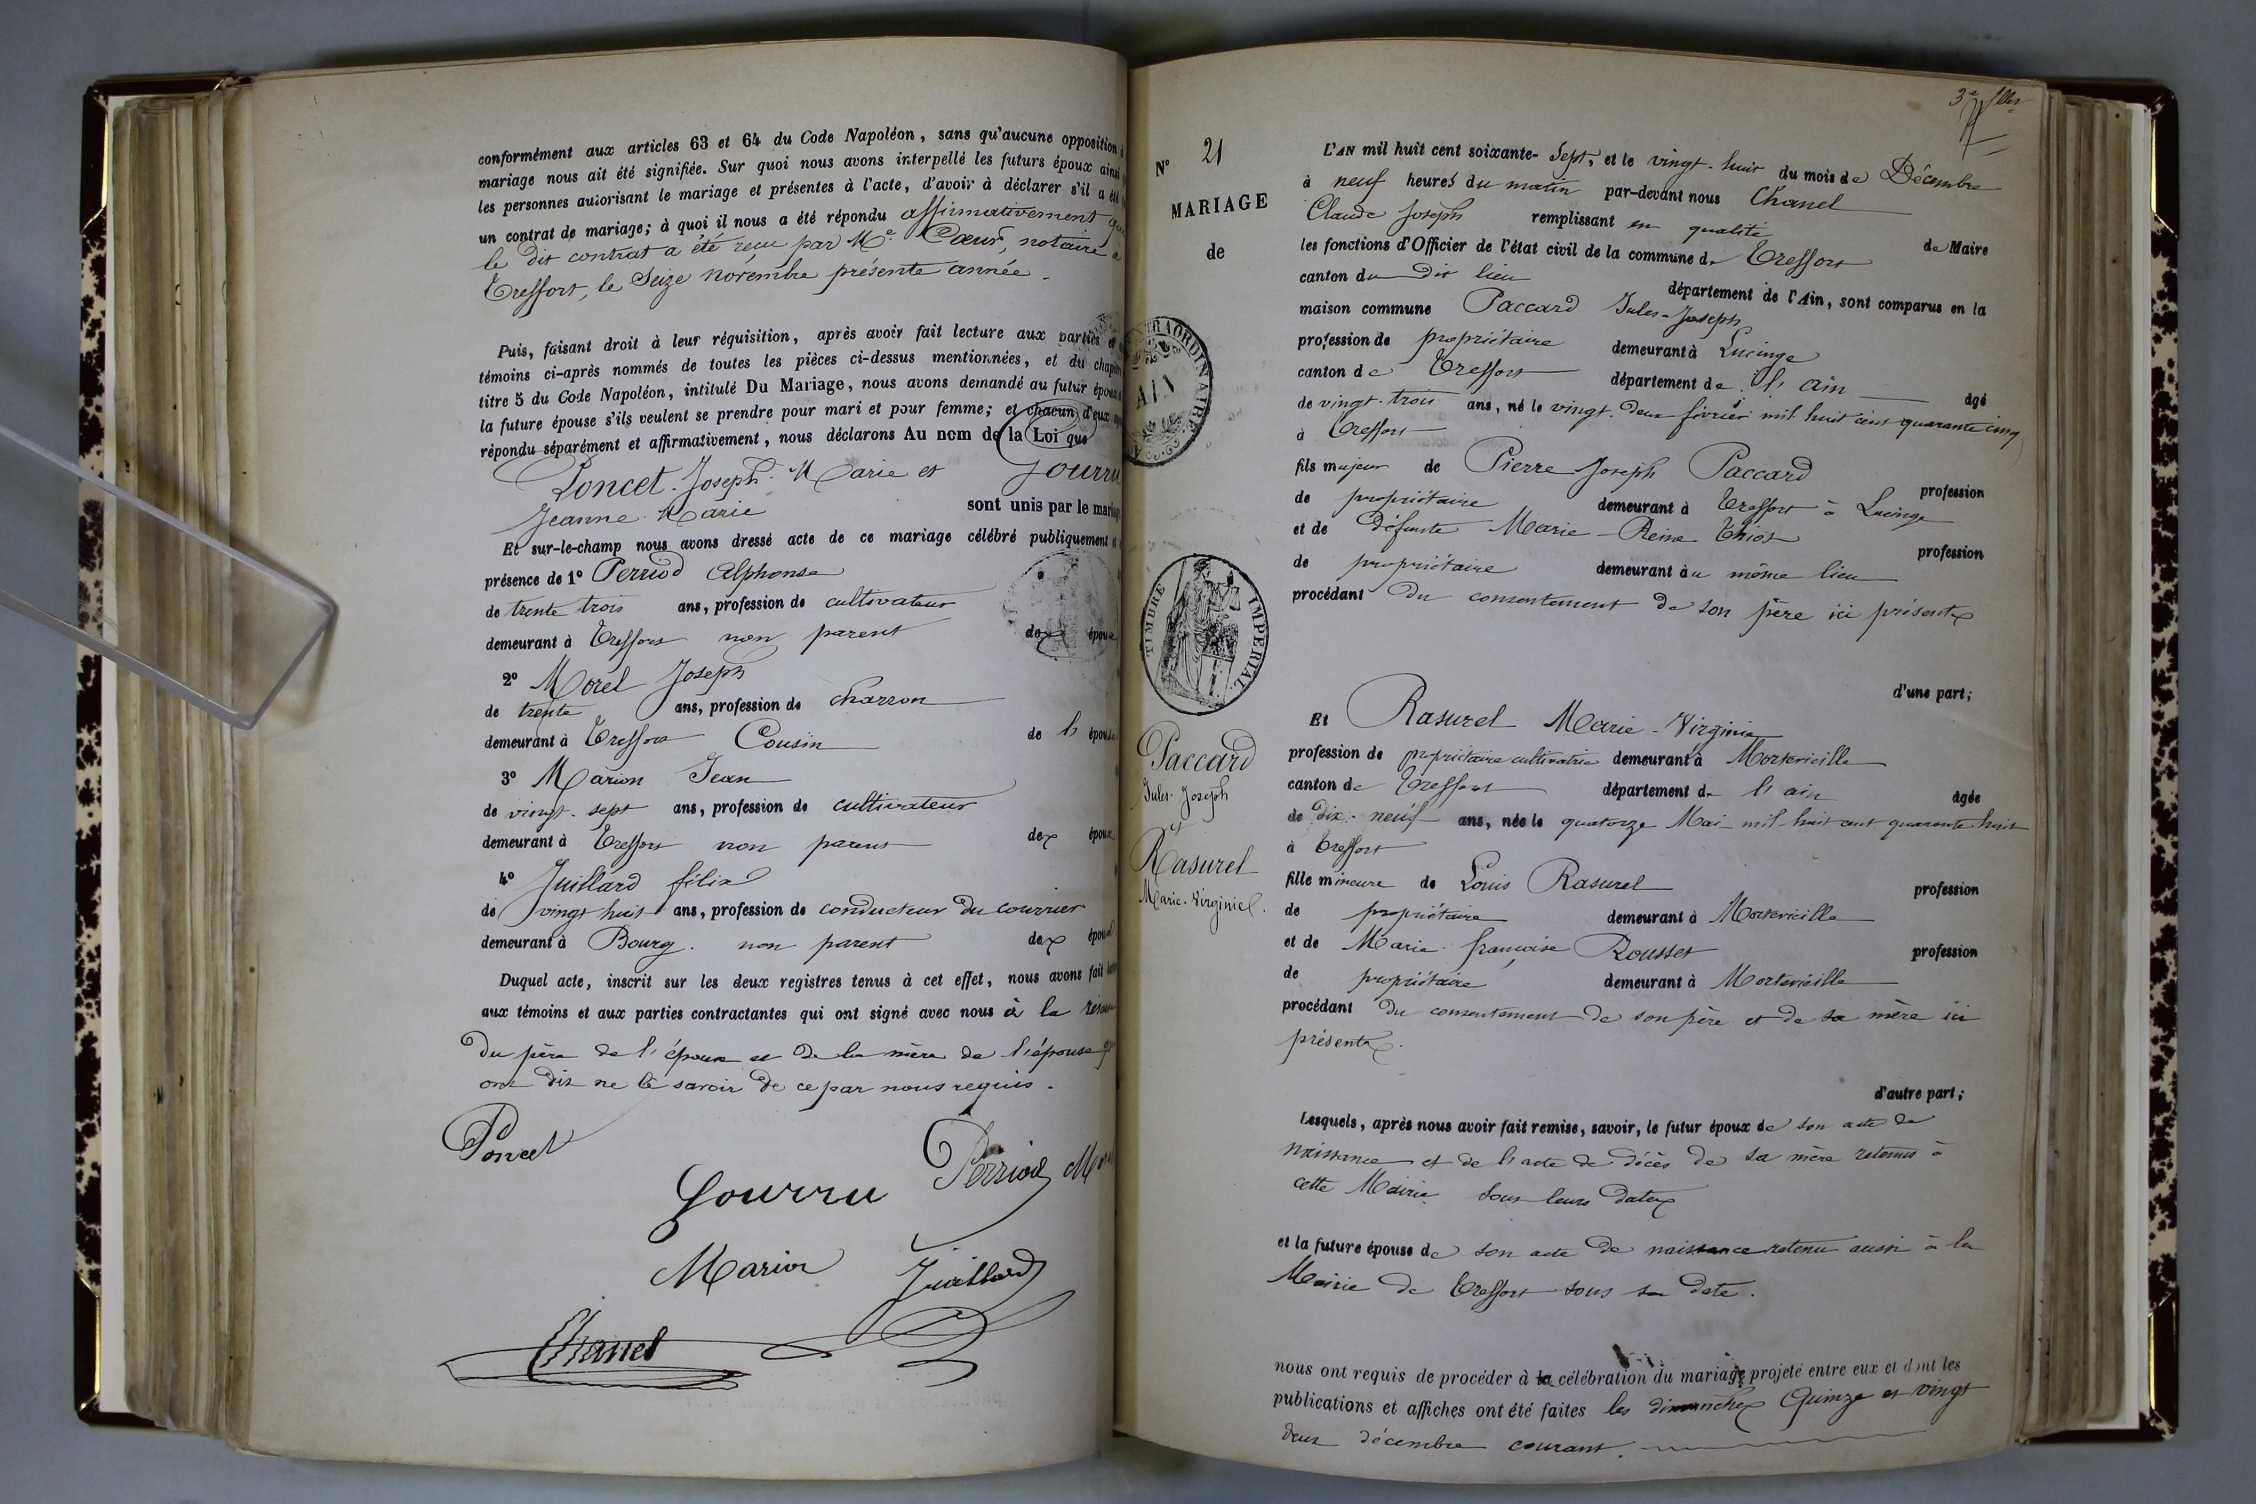 conformément aux articles 63 et 64 du Code Napoléon, sans qu'aucune opposition
mariage nous ait été signifiée. Sur quoi nous avons interpellé les futurs époux ainsi
les personnes autorisant le mariage et présentes à l'acte, d'avoir à déclarer s'il a été
un contrat de mariage; à quoi il nous a été répondu affirmativement que
le dit contrat a été reçu par Me Cœur, notaire à
Treffort, le Seize novembre présente année.
Puis, faisant droit à leur réquisition, après avoir fait lecture aux parties et
témoins ci-après nommés de toutes les pièces ci-dessus mentionnées, et du chapitre
titre 5 du Code Napoléon, intitulé Du Mariage, nous avons demandé au futur époux
la future épouse s'ils veulent se prendre pour mari et pour femme; et chacun d'eux
répondu séparément et affirmativement, nous déclarons Au nom de la Loi que
Poncet Joseph Marie et Gourru
Jeanne Marie sont unis par le mariage
Et sur-le-champ nous avons dressé acte de ce mariage célébré publiquement
présence de 1° Perriod Alphonse
de trente trois ans, profession de cultivateur
demeurant à Treffort non parent des époux
2° Morel Joseph
de trente ans, profession de charron
demeurant à Treffort Cousin de l'épouse
3° Marion Jean
de vingt-sept ans, profession de cultivateur
demeurant à Treffort non parent des époux
4° Juillard félix
de vingt huit ans, profession de conducteur du courrier
demeurant à Bourg. non parent des époux
Duquel acte, inscrit sur les deux registres tenus à cet effet, nous avons fait
aux témoins et aux parties contractantes qui ont signé avec nous à la
du père de l'époux et de la mère de l'épouse
ont dit ne le savoir de ce par nous requis.
Poncet
Gourru Perriod
Marion Juillard
Chanel
3e
N° 21
MARIAGE
de
EXTRAORDINAIRE
AIN
TIMBRE IMPERIAL
Paccard
Jules-Joseph
et
Rasurel
Marie-Virginie
L'AN mil huit cent soixante-Sept, et le vingt-huit du mois de Décembre
à neuf heures du matin par-devant nous Chanel
Claude Joseph remplissant en qualité de Maire
les fonctions d'Officier de l'état civil de la commune de Treffort
canton du dit lieu département de l'Ain, sont comparus en la
maison commune Paccard Jules-Joseph
profession de propriétaire demeurant à Lucinge
canton de Treffort département de l'ain âgé
de vingt-trois ans, né le vingt-deux février mil huit cent quarante cinq
à Treffort
fils majeur de Pierre Joseph Paccard profession
de propriétaire demeurant à Treffort à Lucinge
et de défunte Marie-Reine Thiot profession
de propriétaire demeurant au même lieu
procédant du consentement de son père ici présent
d'une part;
Et Rasurel Marie-Virginie
profession de propriétaire cultivatrice demeurant à Montevieille
canton de Treffort département de l'ain âgée
de dix-neuf ans, née le quatorze Mai mil huit cent quarante huit
à Treffort
fille mineure de Louis Rasurel profession
de propriétaire demeurant à Mortevieille
et de Marie françoise Rousset profession
de propriétaire demeurant à Mortevieille
procédant du consentement de son père et de sa mère ici
présents.
d'autre part;
Lesquels, après nous avoir fait remise, savoir, le futur époux de son acte de
naissance et de l'acte de décès de sa mère retenus à
cette Mairie sous leurs dates
et la future épouse de son acte de naissance retenu aussi à la
Mairie de Treffort sous sa date.
nous ont requis de procéder à la célébration du mariage projeté entre eux et dont les
publications et affiches ont été faites les dimanches Quinze et vingt
deux décembre courant.